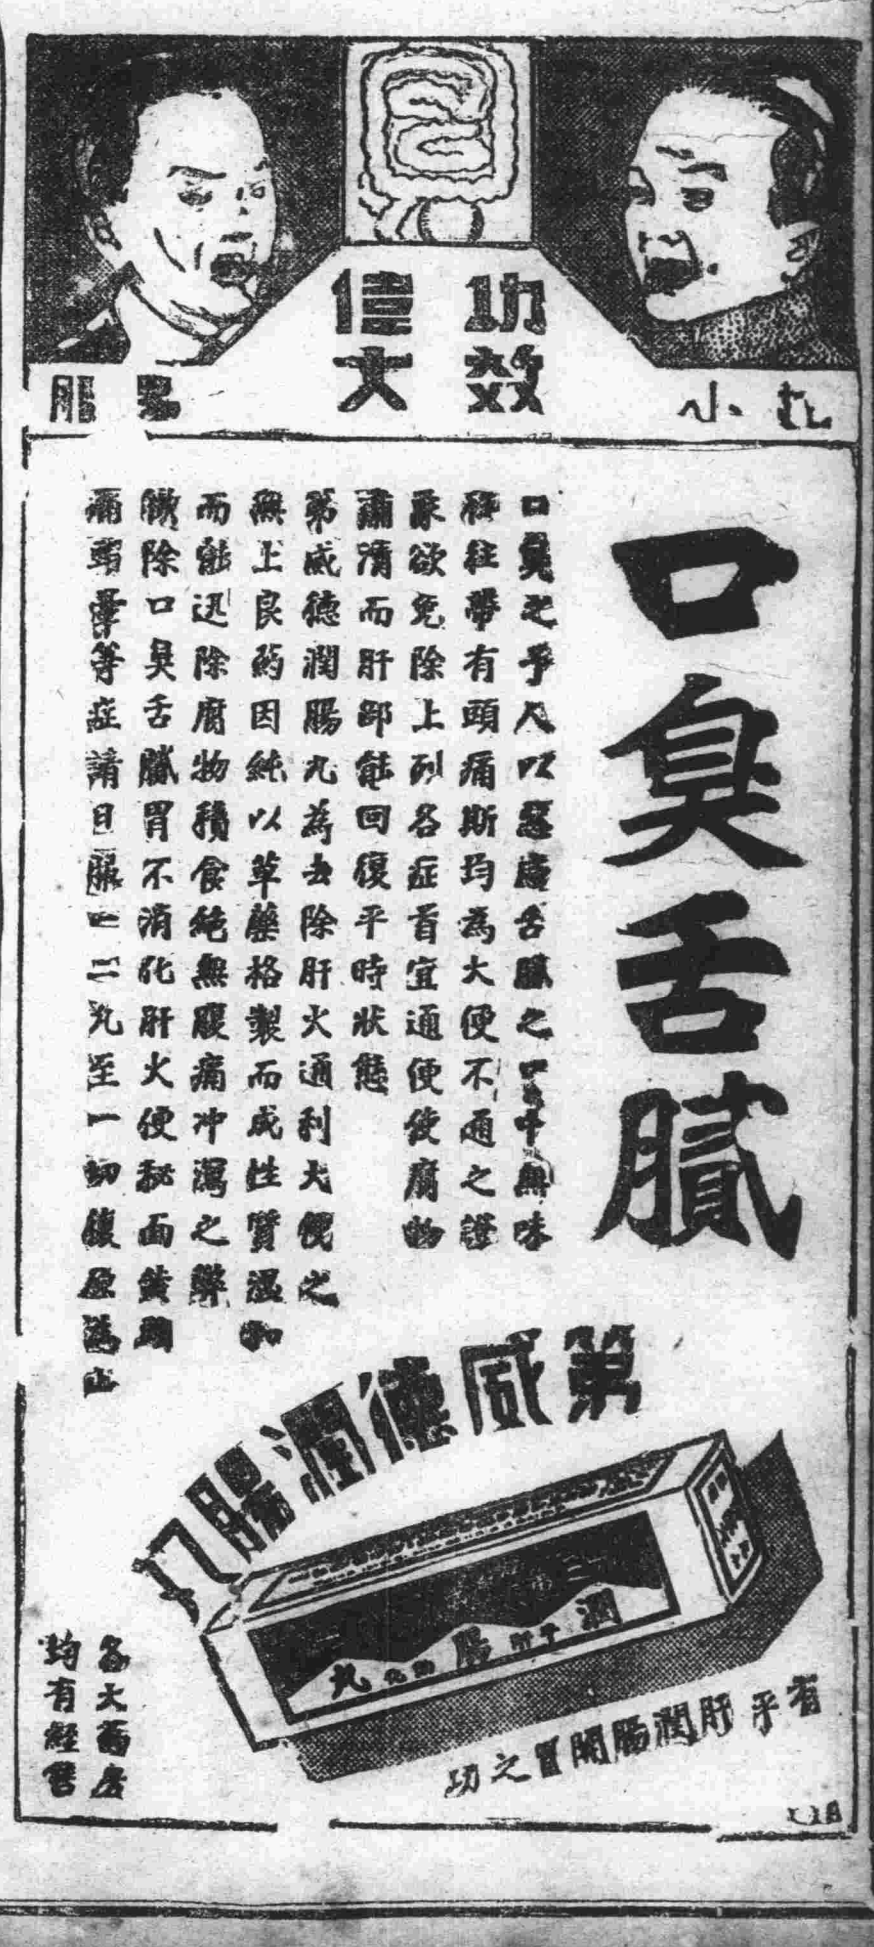 功效
偉大
粒小
易服
口臭舌膩
口臭之予人以惡感舌膩之口中無味
種往帶有頭痛斯均為大便不通之證
象欲免除上列各症首宜通便使腐物
肅清而肝部能回復平時狀態
第威德潤腸丸為去除肝火通利大便之
無上良药因純以草藥格製而成性質溫和
而能迅除腐物積食絕無腹痛冲瀉之弊
除口臭舌膩胃不消化肝火便秘面黃頭
痛等症請日服一二丸至一切復原為止
第威德潤腸丸
潤腸丸
平肝
有平肝潤腸開胃之功
各大药房
均有經售